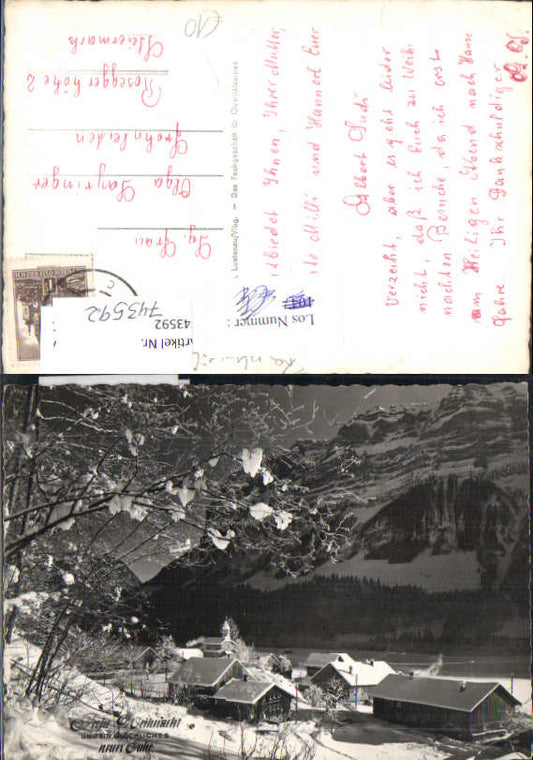 €10
Sg. Frau
Olga Sayringer
Frohnleiten
Rosegger höhe 2
Steiermark
Lustenau/Vlbg. — Das Fachgeschäft für Qualitätskarten
Ihnen, Ihrer Mutter,
Milli und Hannerl Euer
Albert
Verzeiht, aber es geht leider
nicht, daß ich Euch zu Weih
nachten Besuche, da ich erst
am Heiligen Abend nach Hause
fahre Ihr Dankschuldiger
Los Nummer :
Artikel Nr.
43592
743592
Frohe Weihnacht
UND EIN GLÜCKLICHES
neues Jahr